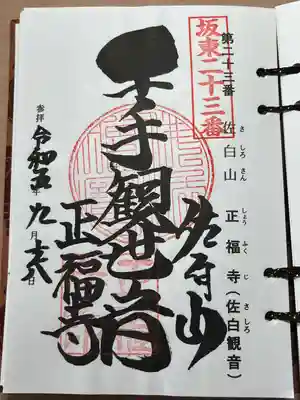 坂東二十三番
第二十三番 佐白山 正福寺(佐白観音)
さしろさん しょうふくじ さしろ
佐白山
千手観世音
正福寺
参拝
令和五年九月
日